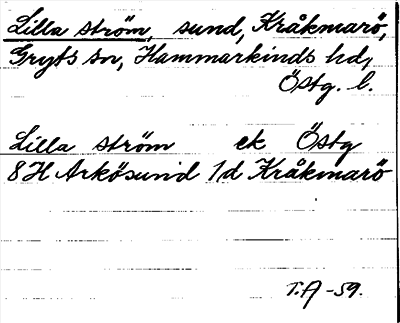 Lilla ström, sund, Kråkmarö,
Gryts sn, Hammarkinds hd,
Östg. l.
Lilla ström ek Östg
8H Arkösund 1d Kråkmarö
T.A -59.